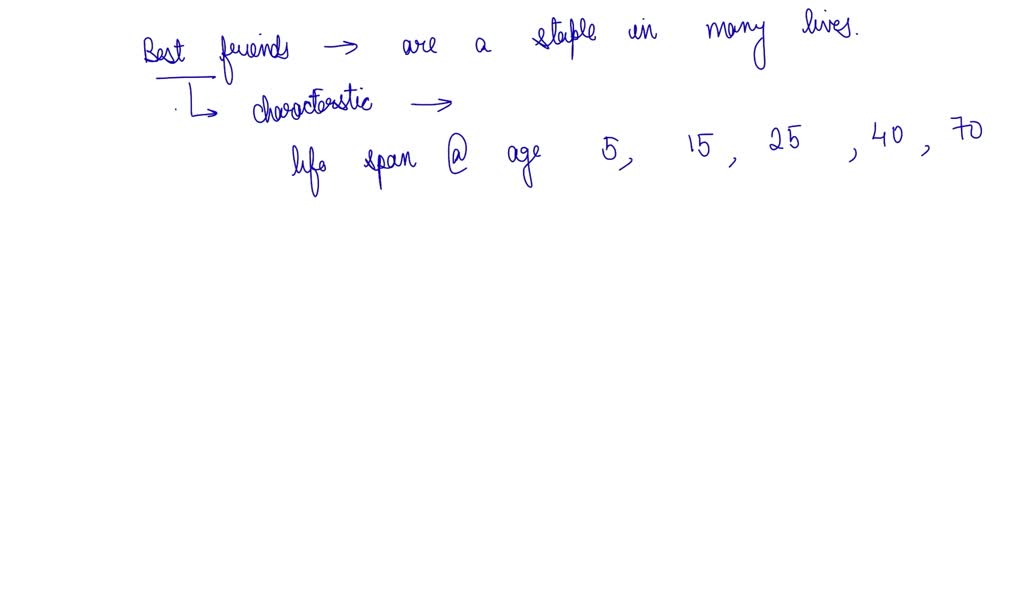 Best friends → are a staple in many lives.
↳ characterstic →
life span @ age 5, 15, 25, 40, 70